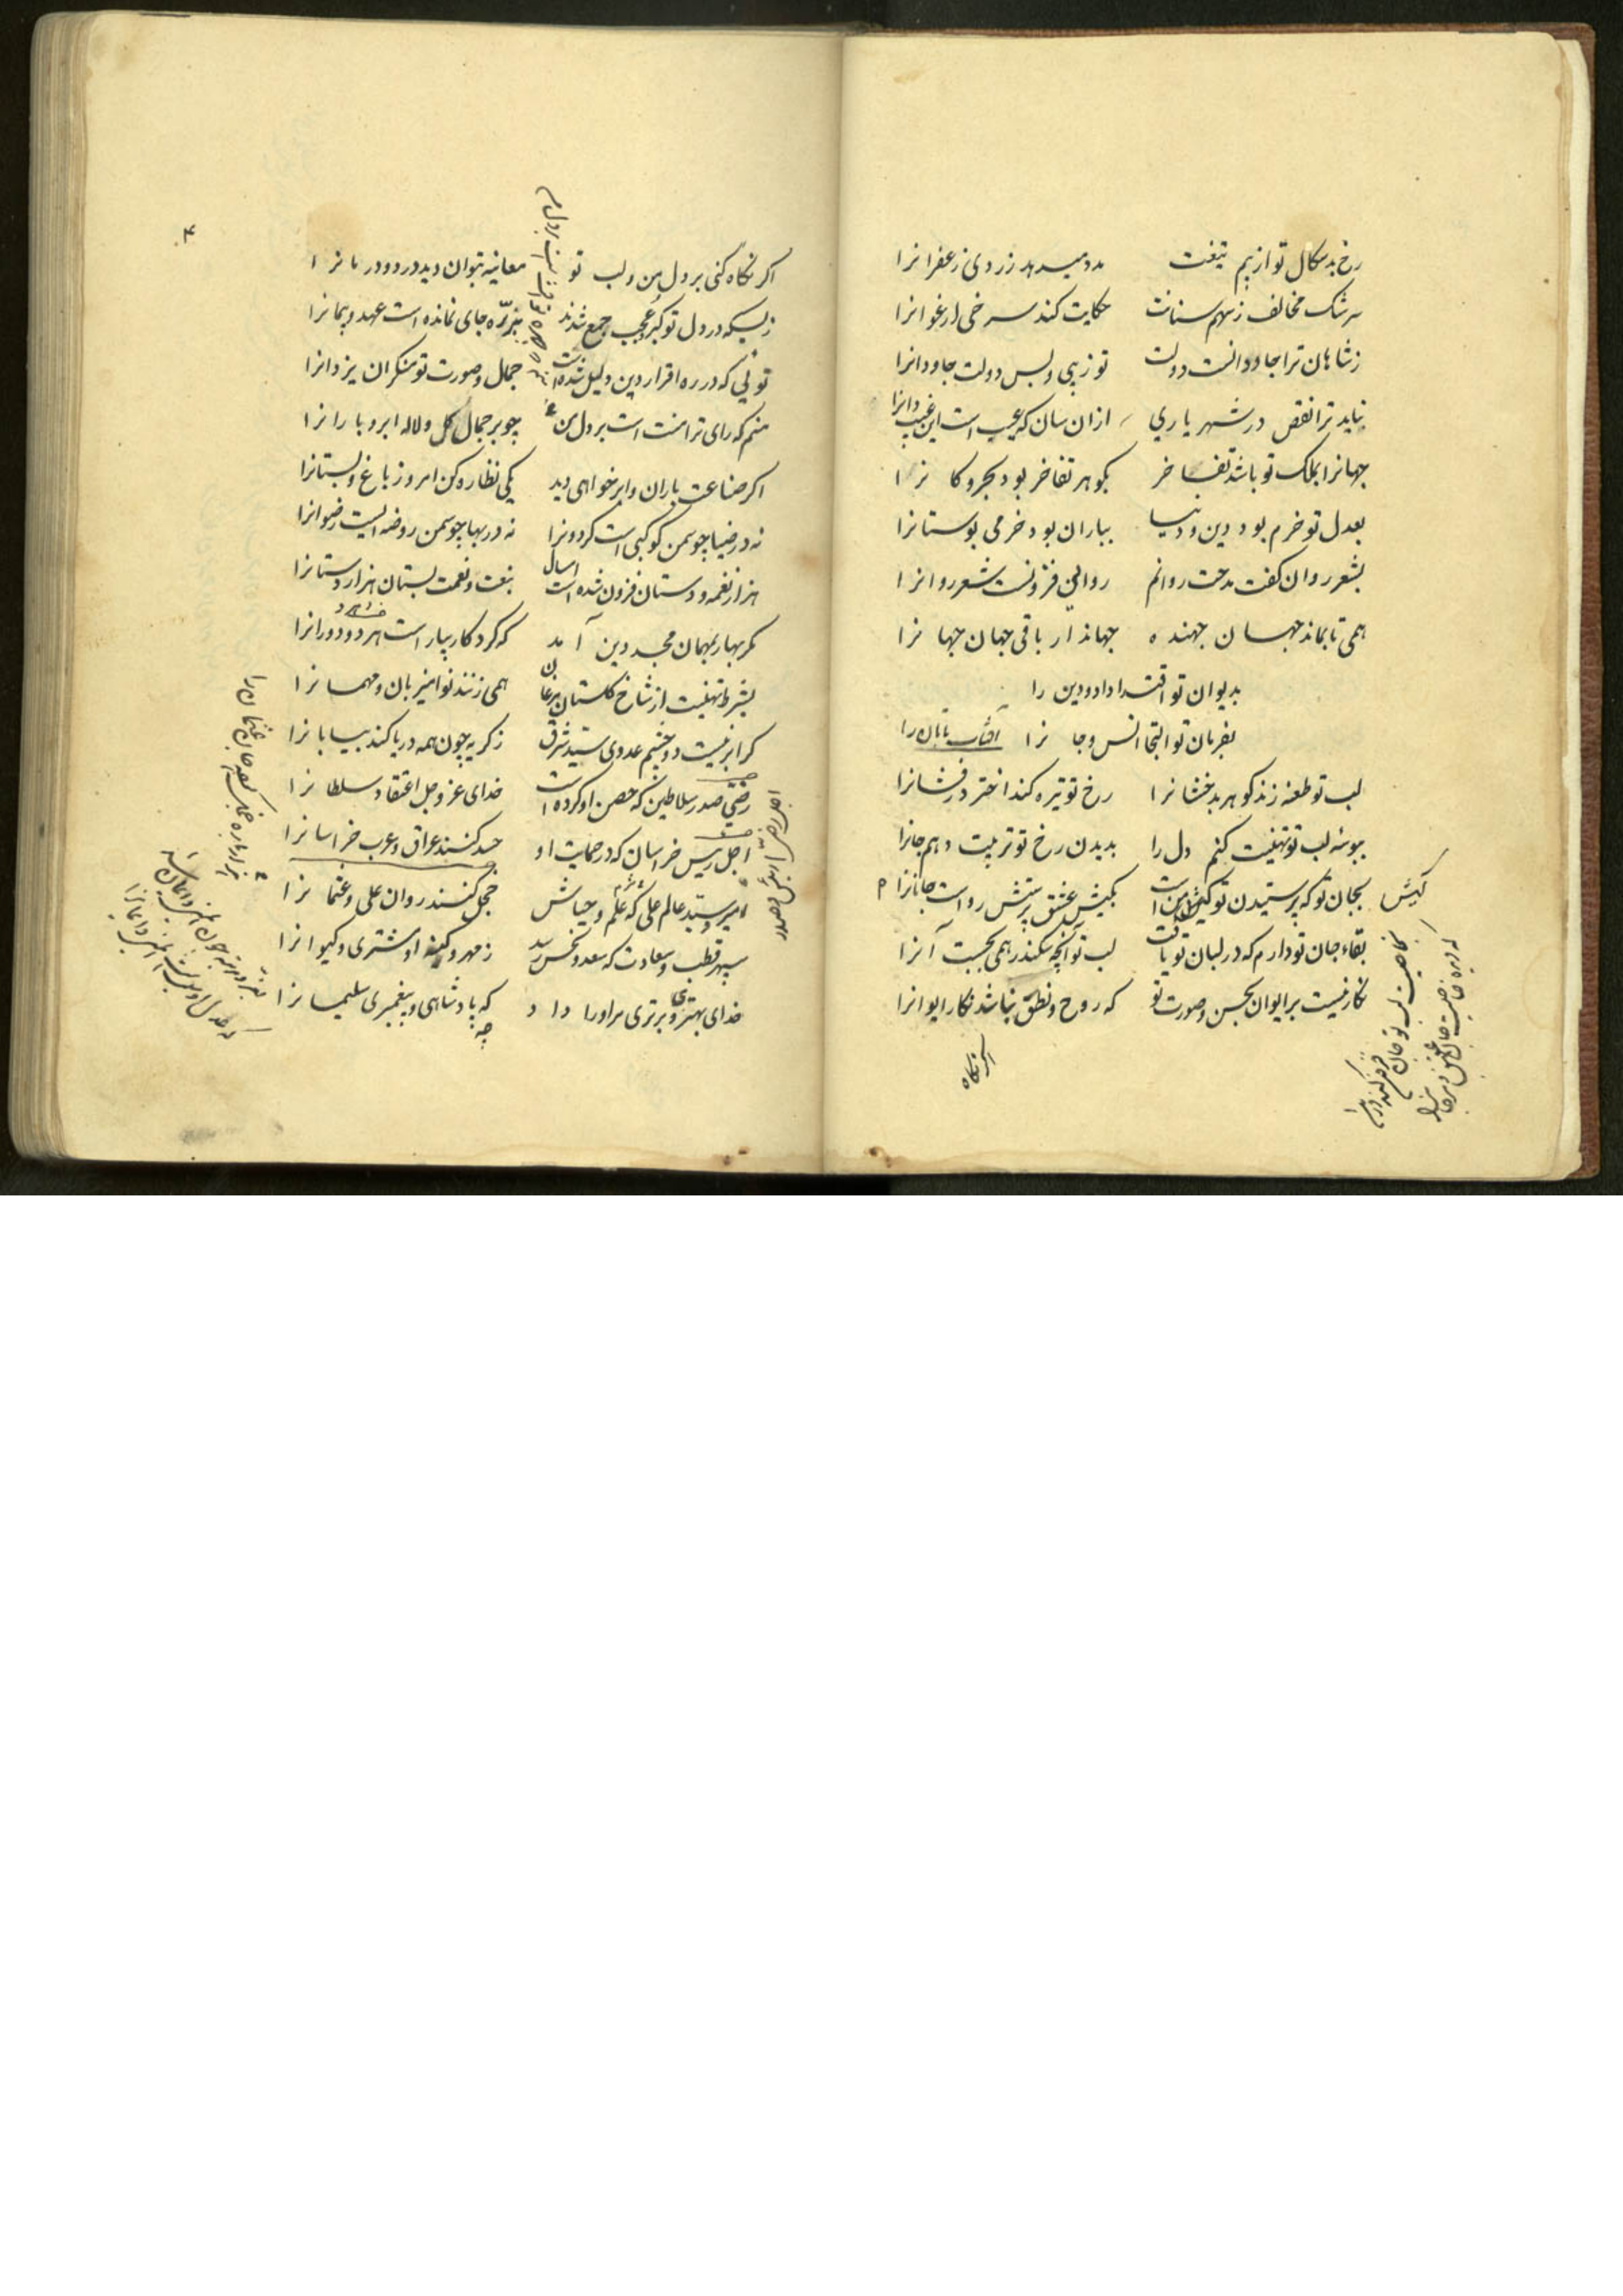 رخ بدسکال تو از بیم تیغت مدد میدهد زردی زعفرانرا
سرشک مخالف ز سهم سنانت حکایت کند سرخی ارغوانرا
ز شاهان ترا جاودانست دولت تو زیبی و بس دولت جاودانرا
نیاید ترا نقص در شهریاری ازان سان که عیب است این غیب دانرا
جهانرا بملک تو باشد تفاخر بکوهر تفاخر بود بحر و کانرا
بعدل تو خرم بود دین و دنیا بباران بود خرمی بوستانرا
بشعر روان کفت مدحت روانم روانی فزونست شعر روانرا
همی تا بماند جهان جهنده جهاندار باقی جهان جهانرا
بدیوان تو اقتدا داد و دین را
بفرمان تو التجا انس و جانرا آفتاب تابان را
لب تو طعنه زند کوهر بدخشانرا رخ تو تیره کند اختر درفشانرا
ببوسه لب تو تهنیت کنم دل را بدیدن رخ تو تربیت دهم جانرا
بجان تو که پرستیدن تو کیش من است بکیش عشق پرستش رواست جانانرا
کیش
بقاء جان تو دارم که در لبان تو یافت لب تو آنچه سکندر همی بجست آنرا
نکار نیست بر ایوان بحسن و صورت تو که روح و نطق نباشد نکار ایوانرا
اگر نکاه
۴
اکر نکاه کنی بر دل من و لب تو معاینه بتوان دید درد و درمانرا
ز بسکه در دل تو کبر و عجب جمع شدند بنیز ذره جای نمانده است عهد و پیمانرا
توئی که در ره اقرار دین دلیل شده است جمال و صورت تو منکران یزدانرا
منم که رای ترا منت است بر دل من چو بر جمال کل و لاله ابر و بارانرا
اکر صناعت باران و ابر خواهی دید یکی نظاره کن امروز باغ و بستانرا
نه در ضیا چو سمن کوکبی است کردونرا نه در بها چو سمن روضه ایست رضوانرا
هزار نغمه و دستان فزون شده است امسال بنعت و نعمت بستان هزاردستانرا
مکر بهار بمهمان مجد دین آمد که کرد کار بیاراست هر دو دورانرا
بشرط تهنیت از شاخ کلستان مرغان همی زنند نوا میزبان و مهمانرا
کر ابر نیست دو چشم عدوی سید شرق ز کریه چون همه دریا کند بیابانرا
رضی صدر سلاطین که حصن او کرده است خدای عز و جل اعتقاد سلطانرا
اجل رئیس خراسان که در حمایت او حسد کنند عراق و عرب خراسانرا
امیر و سید عالم علی که علم و حیاش خجل کنند روان علی و عثمانرا
سپهر قطب و سعادت که سعد و نحس رسد ز مهر و کینه او مشتری و کیوانرا
خدای بهتری و برتری مر او را داد که پادشاهی و پیغمبری سلیمانرا